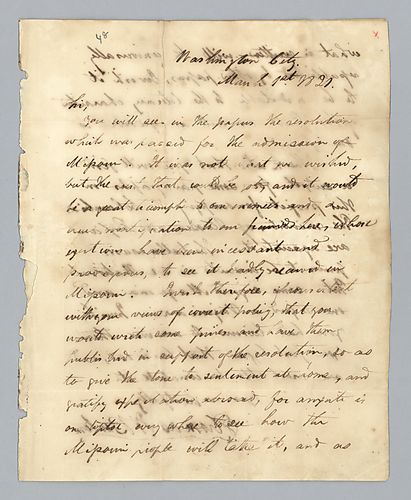 48
x
Washington City.
March 1st 1821.
Sir,
You will see in the papers the resolution
which was passed for the admission of
Missouri. It was not what we wished,
but the best that could be got, and it would
be a great triumph to our enemies and a
mortification to our friends here, whose
exertions have been incessant and
prodigious, to see it badly received in
Missouri. I wish therefore, if consistent
with your views of correct policy, that you
would write some pieces and have them
published in support of the resolution, so as
to give the tone to sentiment at home, and
gratify expectation abroad, for anxiety is
on tiptoe every where to see how the
Missouri people will take it, and as